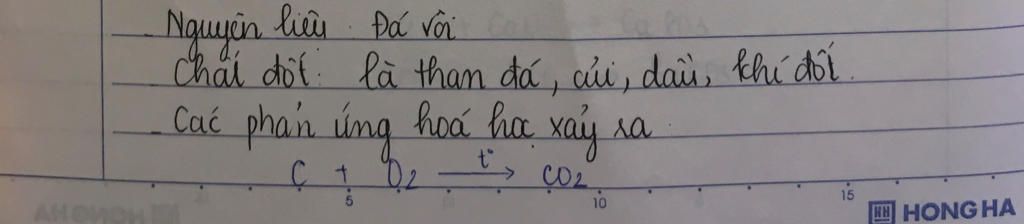 - Nguyên liệu: Đá vôi
Chất đốt: là than đá, củi, dầu, khí đốt.
- Các phản ứng hoá học xảy ra
C + O2 t° → CO2
5 10 15
HH HONG HA